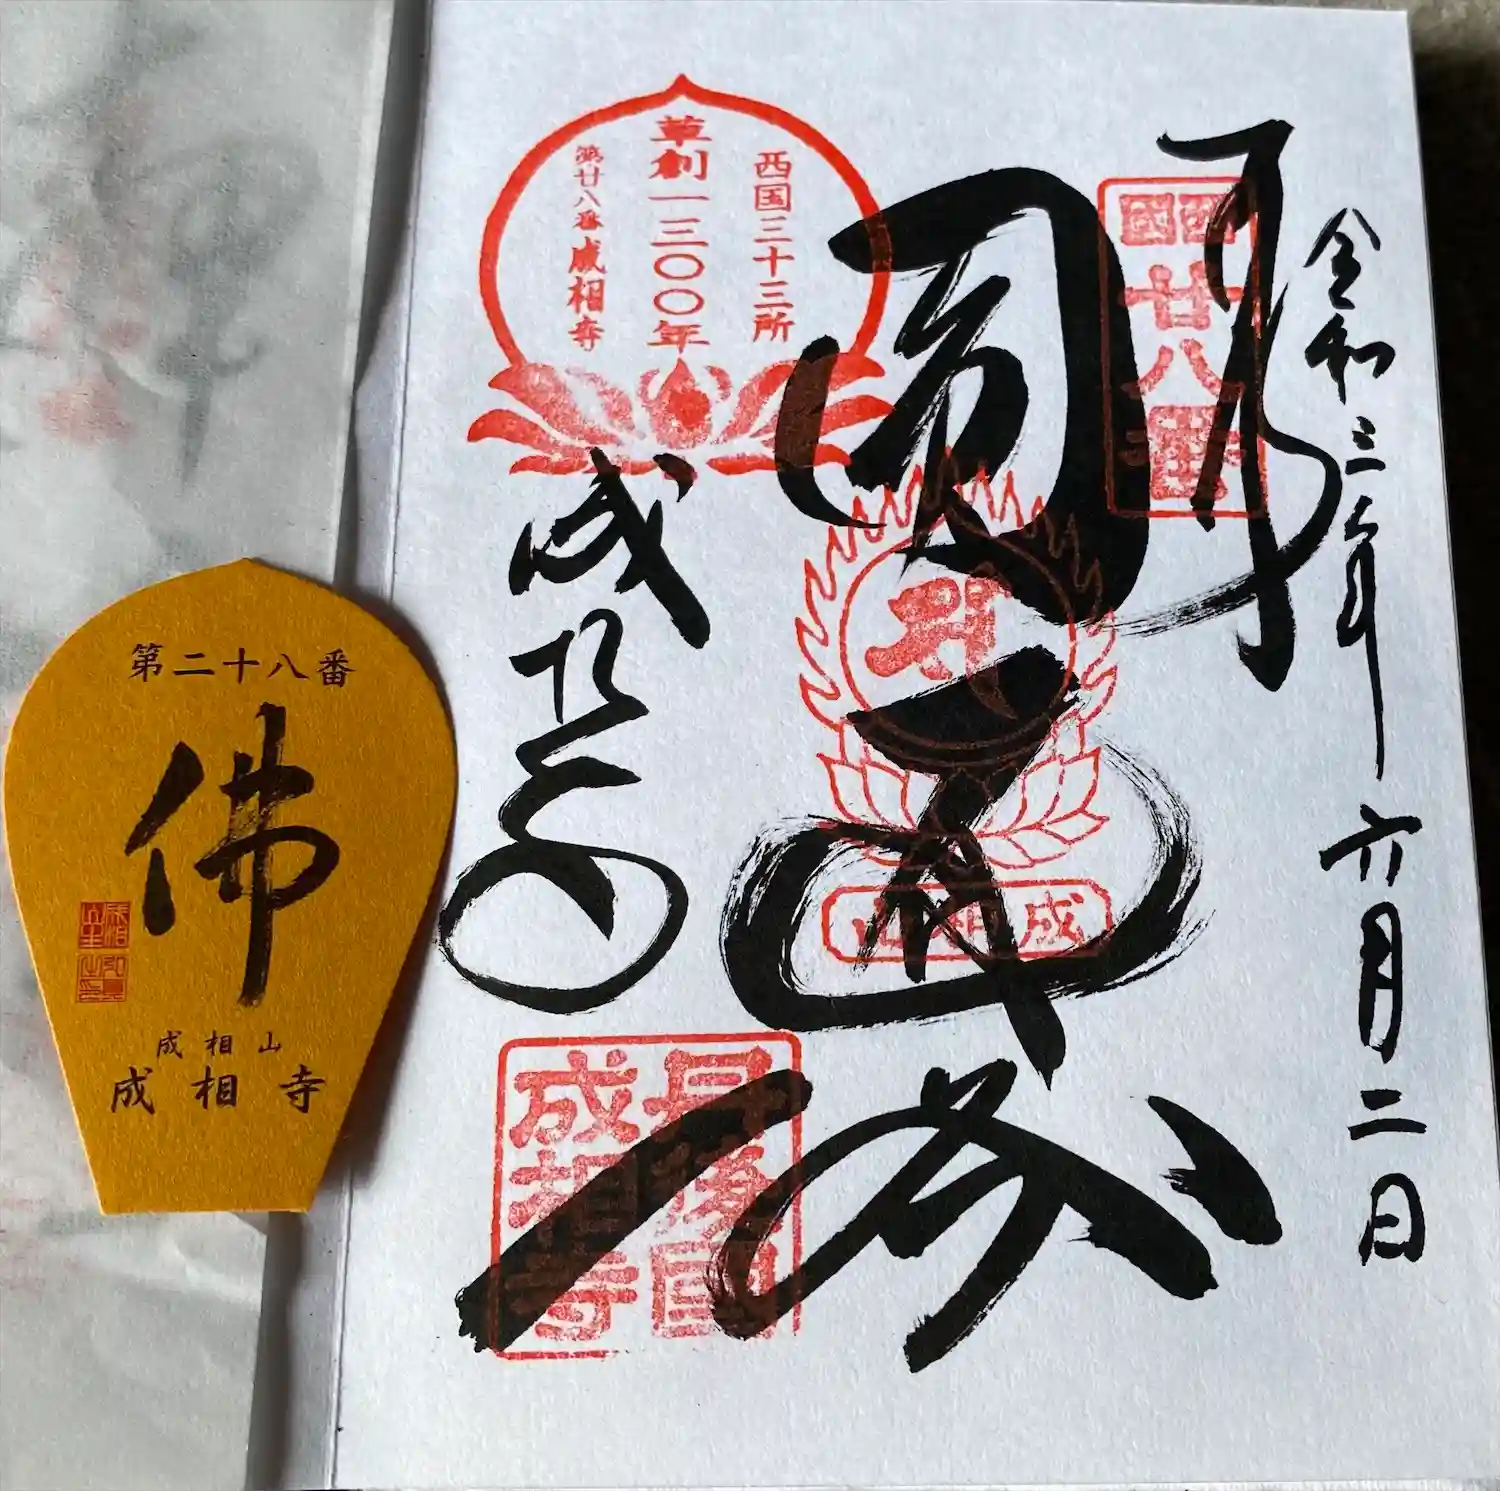 奉拝
令和三年六月二日
西國
廿八番
圓通閣
成相山
西国三十三所
草創一三〇〇年
第廿八番成相寺
成相寺
丹後國
成相寺
第二十八番
佛
成相山
成相寺